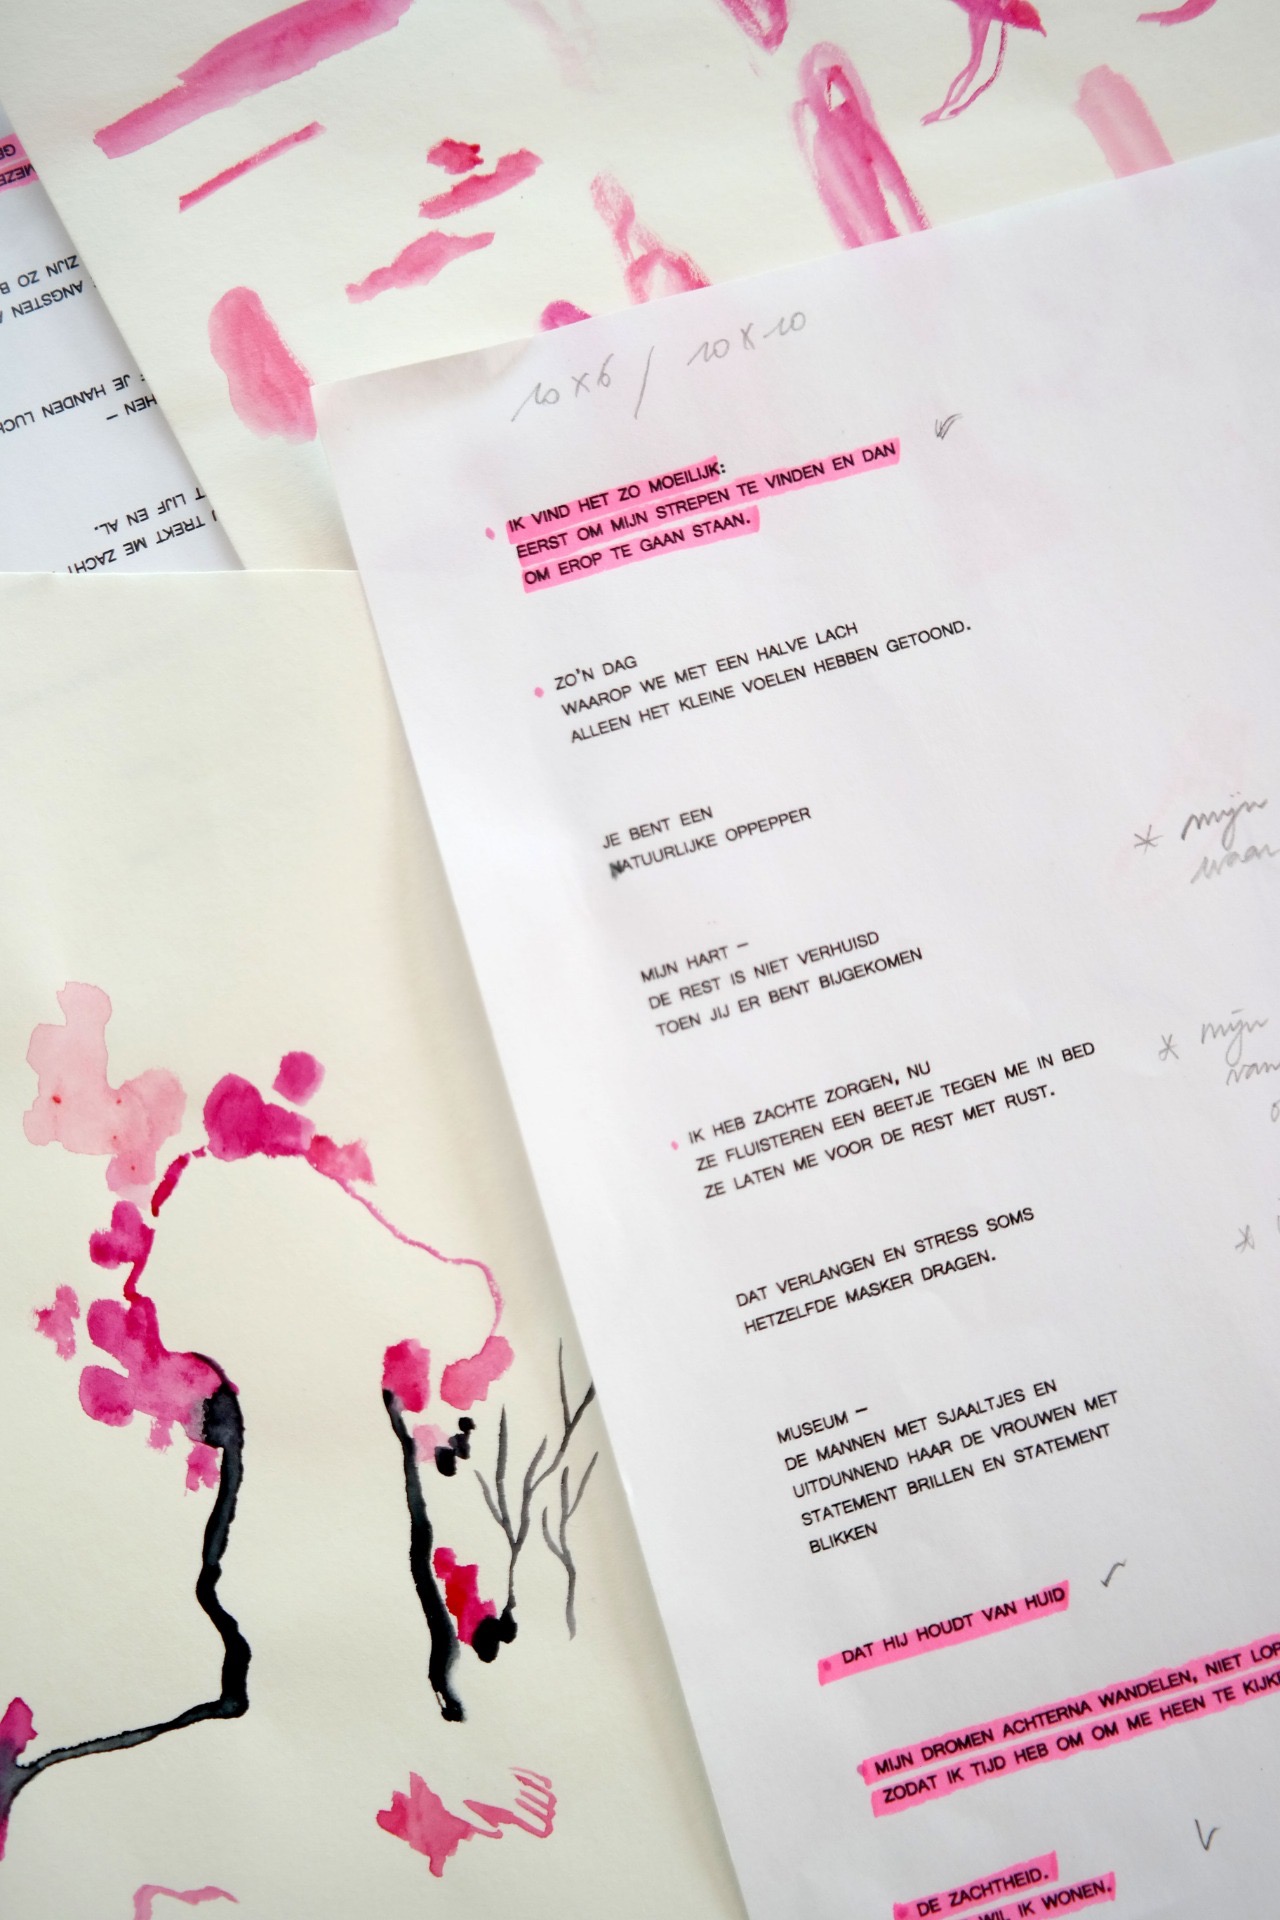 10 x 6 / 10 x 10
IK VIND HET ZO MOEILIJK:
EERST OM MIJN STREPEN TE VINDEN EN DAN
OM EROP TE GAAN STAAN.
ZO'N DAG
WAAROP WE MET EEN HALVE LACH
ALLEEN HET KLEINE VOELEN HEBBEN GETOOND.
JE BENT EEN
NATUURLIJKE OPPEPPER
MIJN HART –
DE REST IS NIET VERHUISD
TOEN JIJ ER BENT BIJGEKOMEN
IK HEB ZACHTE ZORGEN, NU
ZE FLUISTEREN EEN BEETJE TEGEN ME IN BED
ZE LATEN ME VOOR DE REST MET RUST.
DAT VERLANGEN EN STRESS SOMS
HETZELFDE MASKER DRAGEN.
MUSEUM –
DE MANNEN MET SJAALTJES EN
UITDUNNEND HAAR DE VROUWEN MET
STATEMENT BRILLEN EN STATEMENT
BLIKKEN
DAT HIJ HOUDT VAN HUID
MIJN DROMEN ACHTERNA WANDELEN, NIET
ZODAT IK TIJD HEB OM OM ME HEEN TE
DE ZACHTHEID.
WIL IK WONEN.
* mijn
waar
* mijn
van
*
TREKT ME ZACHT
LIJF EN AL.
HEN –
JE HANDEN
ANGSTEN
ZIJN ZO